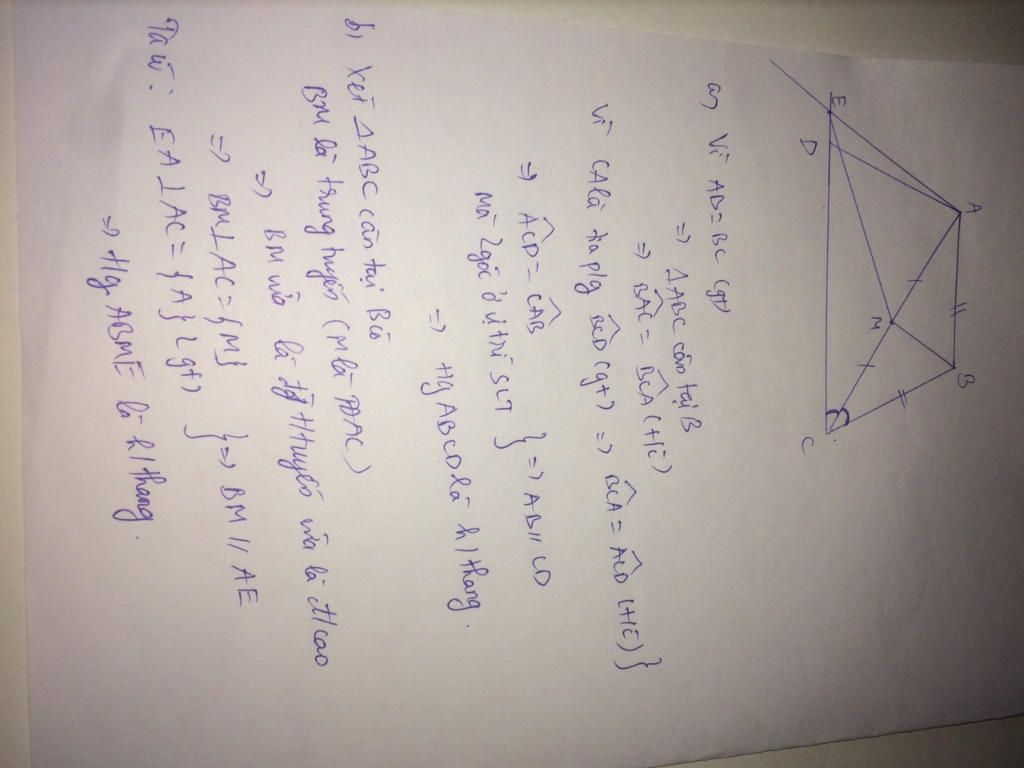 A
B
E
D
M
C
a) Vì AB = BC (gt)
=> ΔABC cân tại B
=> BAC = BCA (t/c)
Vì CA là tia p/g BCD (gt) => BCA = ACD (t/c) }
=> ACD = CAB
Mà 2 góc ở vị trí SLT } => AB // CD
=> Hg ABCD là h/thang.
b) Xét ΔABC cân tại B có
BM là trung tuyến (M là AC)
=> BM vừa là t/tuyến vừa là đ/cao
=> BM ⊥ AC = {M}
Ta có: EA ⊥ AC = {A} (gt) } => BM // AE
=> Hg ABME là h/thang.